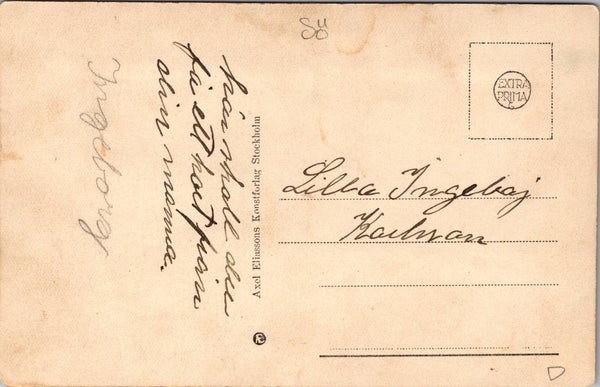 här skall du
få ett kort från
din mamma.
Ingeborg
Axel Eliassons Konstförlag Stockholm
EXTRA
PRIMA
Lilla Ingeborj
D